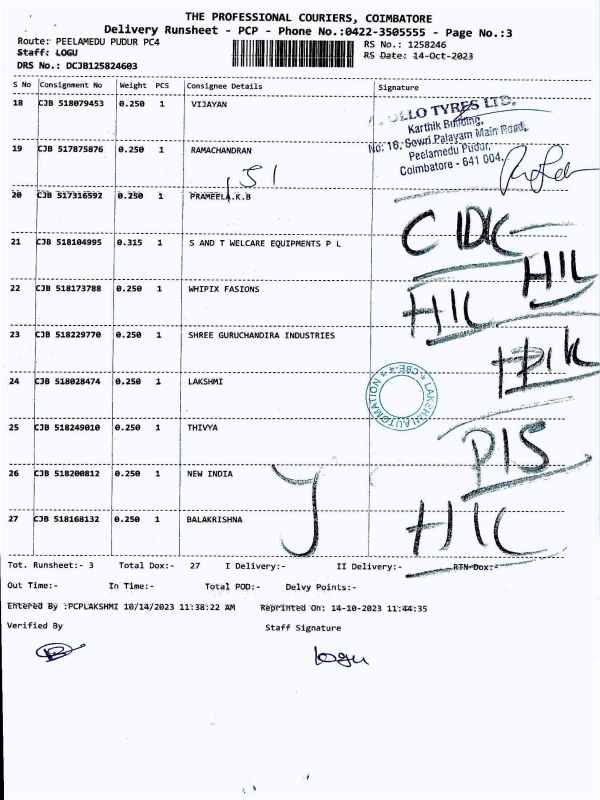 THE PROFESSIONAL COURIERS, COIMBATORE
Delivery Runsheet - PCP - Phone No.:0422-3505555 - Page No.:3
Route: PEELAMEDU PUDUR PC4 RS No.: 1258246
Staff: LOGU RS Date: 14-Oct-2023
DRS No.: DCJB125824603
S No Consignment No Weight PCS Consignee Details Signature
18 CJB 518079453 0.250 1 VIJAYAN
LLO TYRES LTD.
Karthik Building,
No: 16, Sowri Palayam Main Road,
Peelamedu Pudur,
Coimbatore - 641 004.
19 CJB 517875876 0.250 1 RAMACHANDRAN
20 CJB 517316592 0.250 1 PRAMEELA.K.B
21 CJB 518104995 0.315 1 S AND T WELCARE EQUIPMENTS P L
22 CJB 518173788 0.250 1 WHIPIX FASIONS
23 CJB 518229770 0.250 1 SHREE GURUCHANDIRA INDUSTRIES
24 CJB 518028474 0.250 1 LAKSHMI
LAKSHMI AUTOMATION * CBE-4 *
25 CJB 518249010 0.250 1 THIVYA
26 CJB 518200812 0.250 1 NEW INDIA
27 CJB 518168132 0.250 1 BALAKRISHNA
Tot. Runsheet:- 3 Total Dox:- 27 I Delivery:- II Delivery:- RTN Dox:-
Out Time:- In Time:- Total POD:- Delvy Points:-
Entered By :PCPLAKSHMI 10/14/2023 11:38:22 AM Reprinted On: 14-10-2023 11:44:35
Verified By Staff Signature
logu